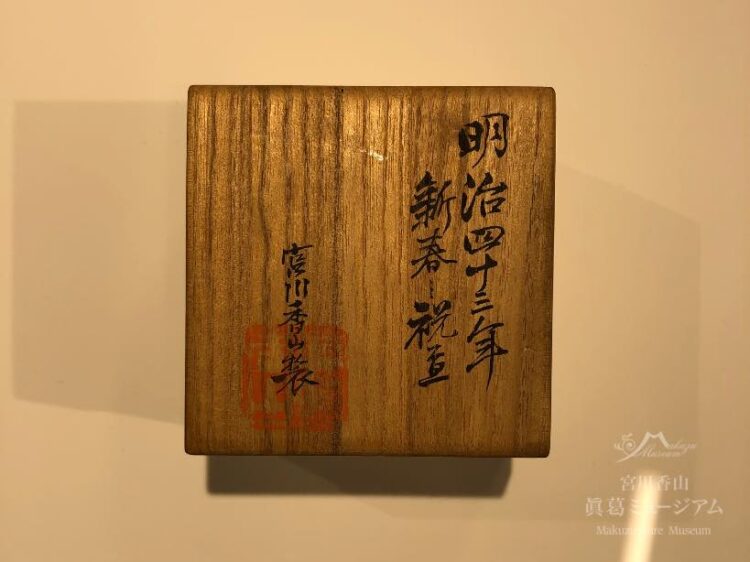 明治四十三年
新春ニ祝画
宮川香山製
Makuzu
Museum
宮川香山
眞葛ミュージアム
Makuzu Ware Museum